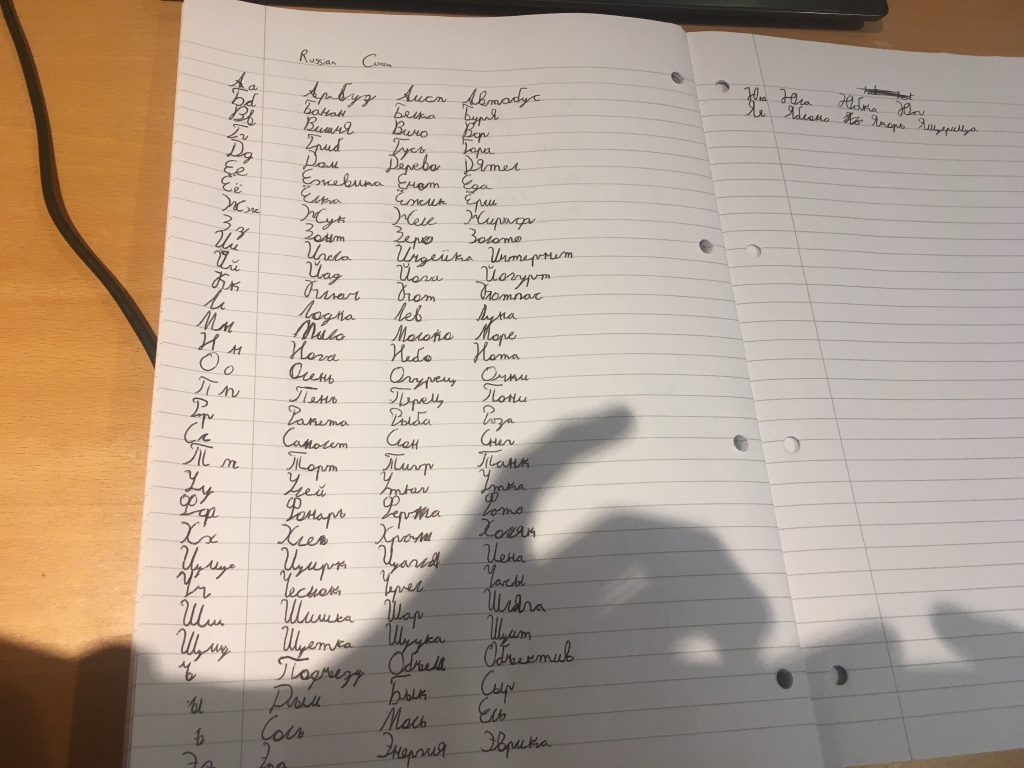 Russian
Аа Арбуз Аист Автобус
Бб Банан Белка Буря
Вв Вишня Вино Вор
Гг Гриб Гусь Гора
Дд Дом Дерево Дятел
Ее Ежевика Енот Еда
Её Ёлка Ёжик Ёрш
Жж Жук Желе Жираф
Зз Зонт Золото
Ии Игла Индейка Интернит
Йй Йод Йога Йогурт
Кк Кот Компас
Лл Лодка Лев Луна
Мм Мыло Молоко Море
Нн Нога Небо Нота
Оо Осень Огурец Очки
Пп Пень Перец Пони
Рр Ракета Рыба Роза
Сс Самолет Слон Снег
Тт Торт Тигр Танк
Уу Улей Утюг Утка
Фф Фонарь Ферма Фото
Хх Хлев Храм Хомяк
Цирк Цапля Цена
Чч Чеснок Череп Часы
Шш Шишка Шар Шляпа
Щетка Щука Щит
ъ Подъезд Объем Объектив
ы Дым Бык Сыр
ь Соль Моль Ель
Ээ Энергия Эврика
Юю Юла Юбка Юг
Яя Яблоко Якорь Ящерица